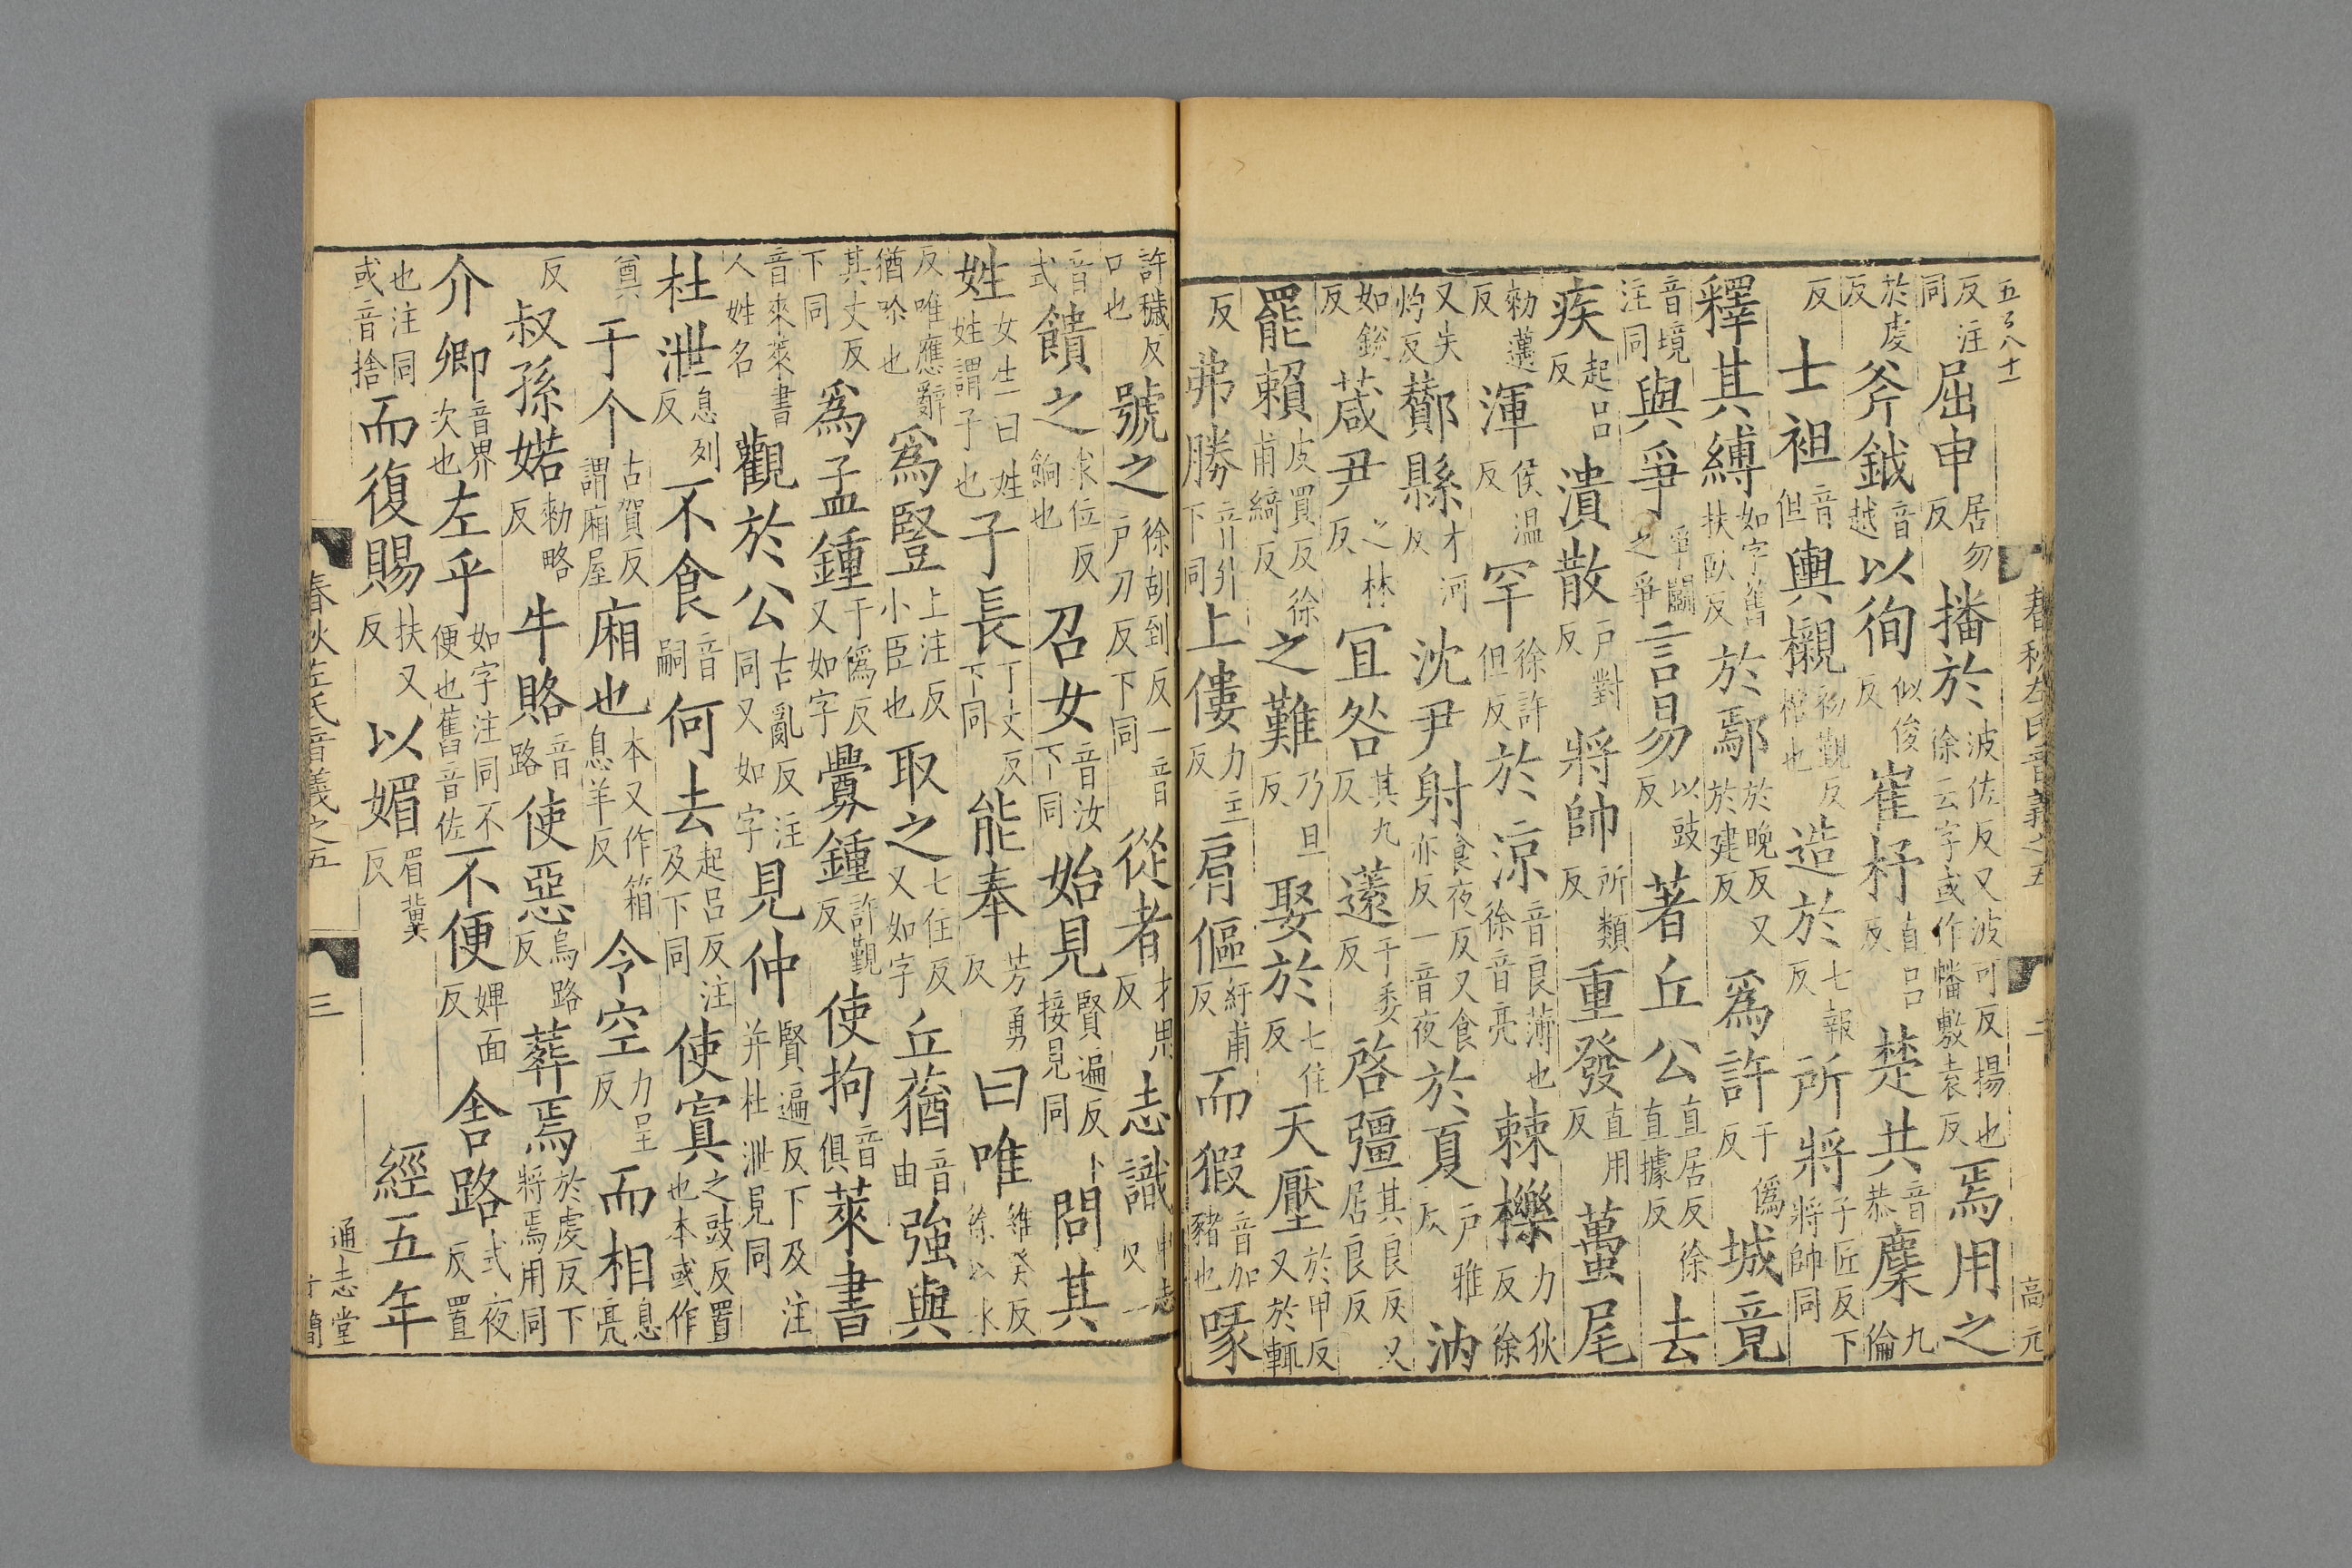 反注同屈申居勿反播於波佐反又波可反揚也徐云字或作幡敷袁反焉用之
於虔反斧鉞音越以徇似俊反崔杼直呂反楚共音恭麇九倫
反士袒音但輿櫬初覲反棺也造於七報反所將子匠反下將帥同
釋其縛如字舊扶臥反於鄢於晚反又於建反爲許于僞反城竟
音境注同與爭爭鬭之爭言易以豉反著丘公直居反徐直據反去
疾起呂反潰散戶對反將帥所類反重發直用反蠆尾
勑邁反渾侯溫反罕徐許但反於涼音良薄也徐音亮棘櫟力狄反徐
又失灼反酇縣才河反沈尹射食夜反又食亦反一音夜於夏戶雅反汭
如銳反葴尹之林反宜咎其九反薳于委反啓彊其良反又居良反
罷賴皮買反徐甫綺反之難乃旦反娶於七住反天壓於甲反又於輒
反弗勝音升下同上僂力主反肩傴紆甫反而猳音加豬也喙
春秋左氏音義之五
二
高元
許穢反口也號之徐胡到反一音戶刀反下同從者才用反志識申志反一
音式饋之求位反餉也召女音汝下同始見賢遍反接見同卜問其
姓女生曰姓姓謂子也子長丁丈反下同能奉芳勇反曰唯維癸反徐以水
反唯應辭猶吟也爲豎上注反小臣也取之七住反又如字丘蕕音由強與
其丈反下同爲孟鍾于僞反又如字釁鍾許覲反使拘音俱萊書
音來萊書人姓名觀於公古亂反注同又如字見仲賢遍反下及注并杜泄見同
杜泄息列反不食音嗣何去起呂反注及下同使寘之豉反置也本或作
奠于个古賀反謂廂屋廂也本又作箱息羊反令空力呈反而相息亮
反叔孫婼勑略反牛賂音路使惡烏路反葬焉於虔反下將焉用同
介卿音界次也左乎如字注同不便也舊音佐不便婢面反舍路式夜反置
也注同或音捨而復賜扶又反以媚眉冀反經五年
春秋左氏音義之五
三
通志堂